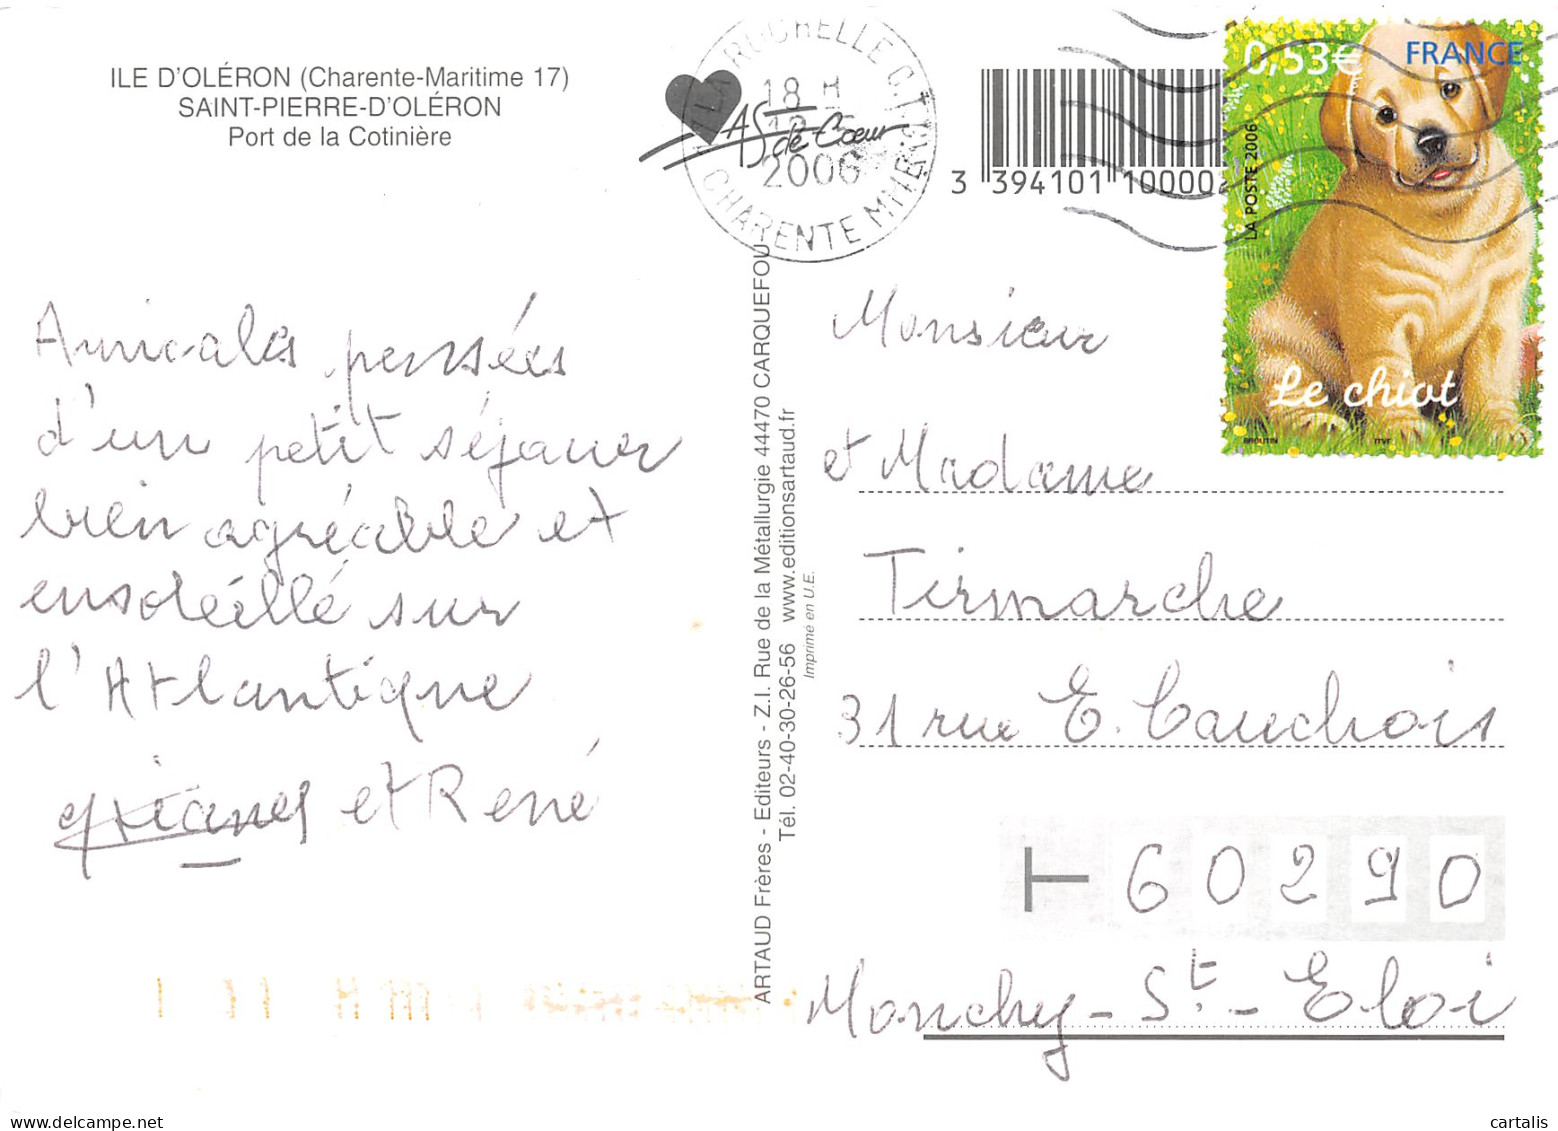 ILE D'OLÉRON (Charente-Maritime 17)
SAINT-PIERRE-D'OLÉRON
Port de la Cotinière
AS de Cœur
LA ROCHELLE C.T
18 H
2006
CHARENTE MME
3 394101 100002
0,53€ FRANCE
LA POSTE 2006
Le chiot
BROUTIN ITVF
Amicales pensées
d'un petit séjour
bien agréable et
ensoleillé sur
l'Atlantique
et René
ARTAUD Frères - Editeurs - Z.I. Rue de la Métallurgie 44470 CARQUEFOU
Tél. 02-40-30-26-56 www.editionsartaud.fr
Imprimé en U.E.
Monsieur
et Madame
Tirmarche
31 rue E. Cauchois
60290
Monchy-St-Eloi
cartalis